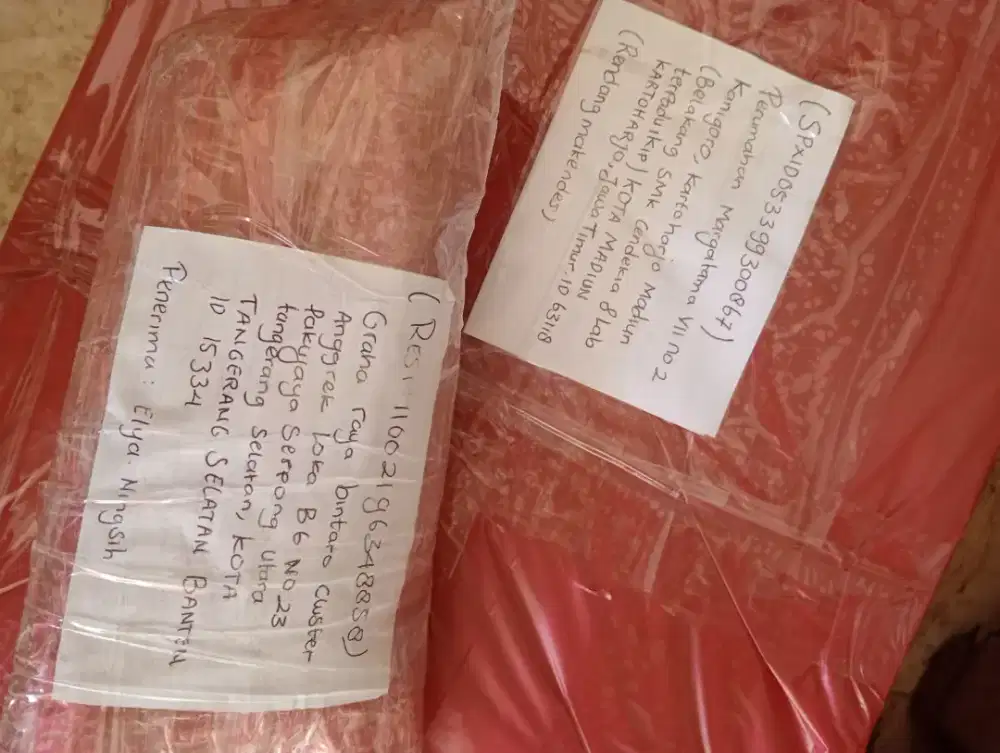 (Resi: 11002196348850)
Graha raya bintaro Cluster
Anggrek Loka B6 NO 23
Pakujaya Serpong Utara
tangerang Selatan, KOTA
TANGERANG SELATAN BANTEN
ID 15334
Penerima: Elya Ningsih
(SPXID053399300867)
Perumahan Margatama VII no 2
Kanigoro, Kartoharjo Madiun
(Belakang SMK Cendekia 8lab
terpadu IKIP) KOTA MADIUN
KARTOHARJO, Jawa Timur. ID 63118
(Rendang makendes)